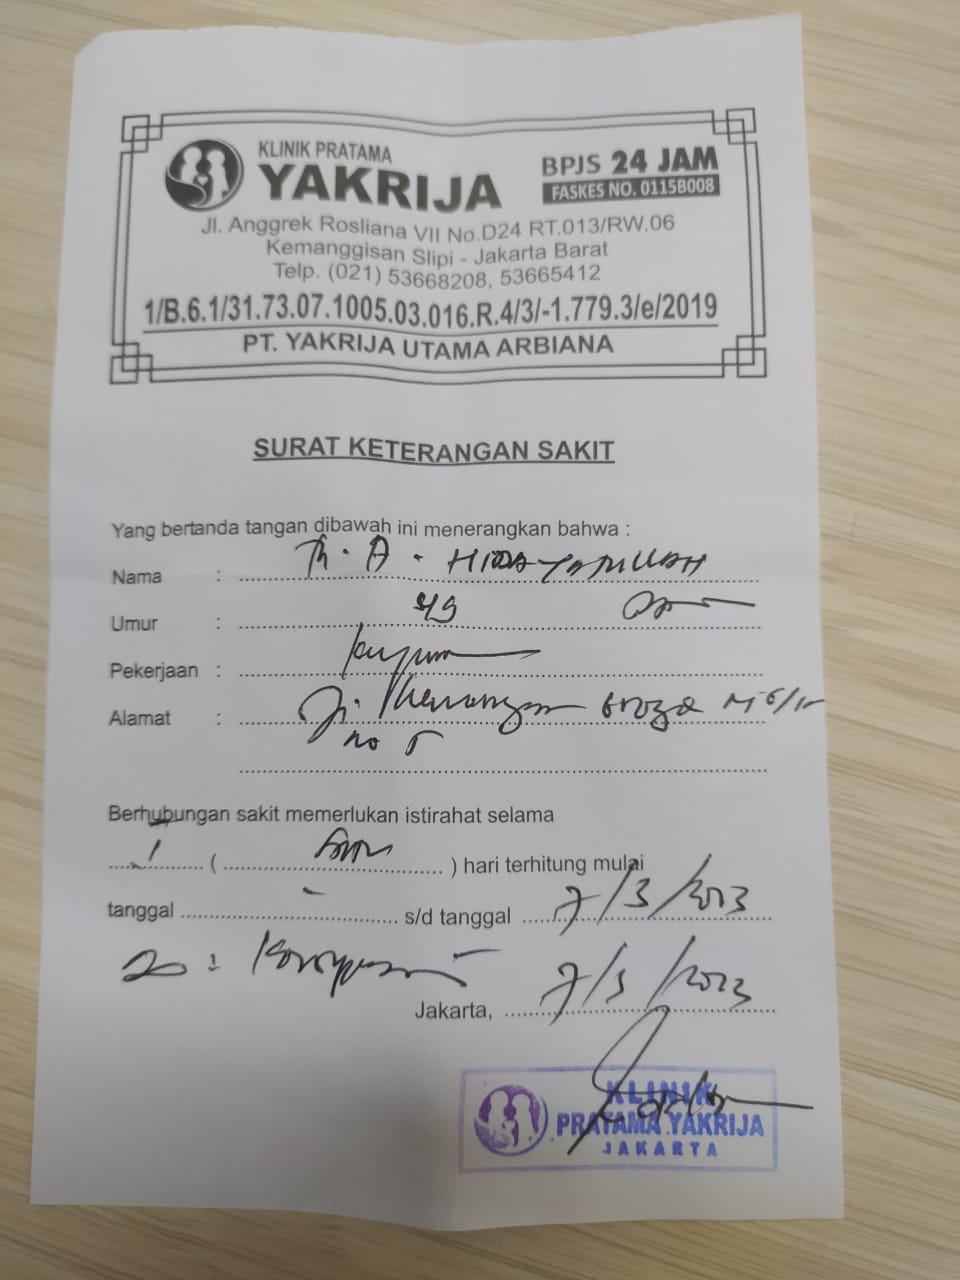 KLINIK PRATAMA
YAKRIJA
BPJS 24 JAM
FASKES NO. 0115B008
Jl. Anggrek Rosliana VII No.D24 RT.013/RW.06
Kemanggisan Slipi - Jakarta Barat
Telp. (021) 53668208, 53665412
1/B.6.1/31.73.07.1005.03.016.R.4/3/-1.779.3/e/2019
PT. YAKRIJA UTAMA ARBIANA
SURAT KETERANGAN SAKIT
Yang bertanda tangan dibawah ini menerangkan bahwa :
Nama : A. HIDAYATULLAH
Umur :
Pekerjaan :
Alamat : Jl.
no 5
Berhubungan sakit memerlukan istirahat selama
1 ( ) hari terhitung mulai
tanggal - s/d tanggal 7/3/2023
Jakarta, 7/3/2023
KLINIK
PRATAMA YAKRIJA
JAKARTA